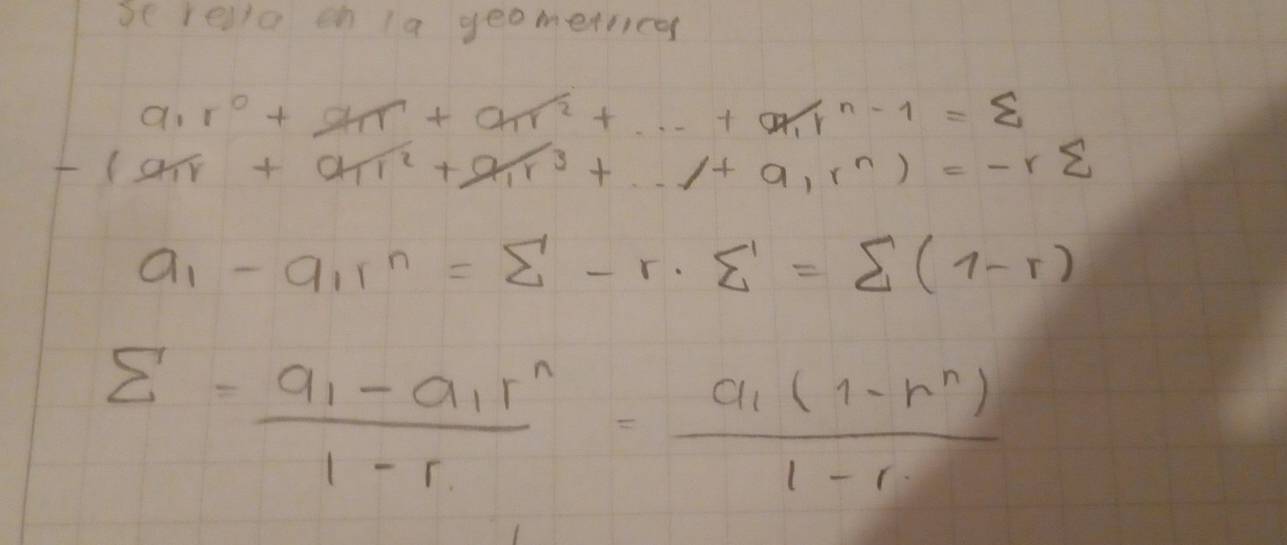 se resta en la geometrica
a₁r⁰ + a₁r + a₁r² + ... + a₁rⁿ⁻¹ = Σ
-(a₁r + a₁r² + a₁r³ + ... + a₁rⁿ) = -rΣ
a₁ - a₁rⁿ = Σ - r·Σ = Σ(1-r)
Σ = (a₁ - a₁rⁿ)/(1-r) = a₁(1-rⁿ)/(1-r)